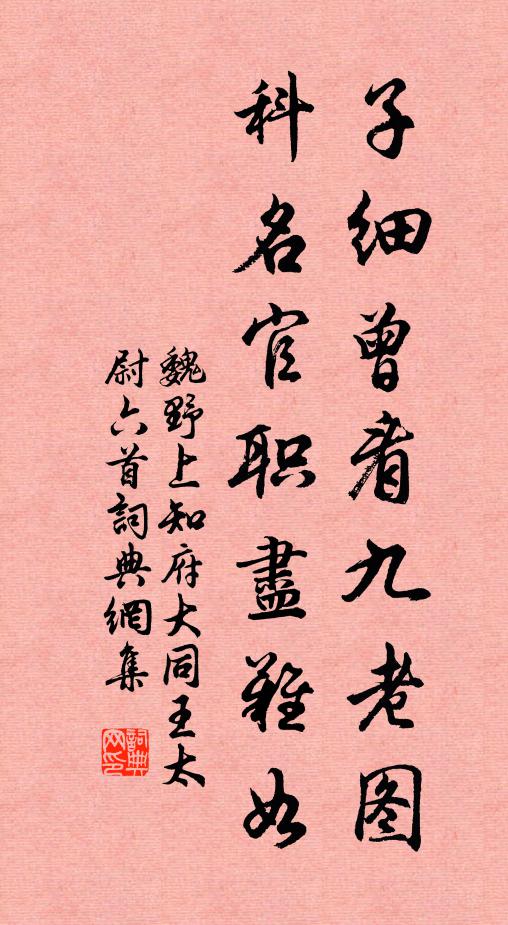 子细曾看九老图
科名官职盡難如
魏野上知府大同王太
尉六首詞典網集
詞典网印